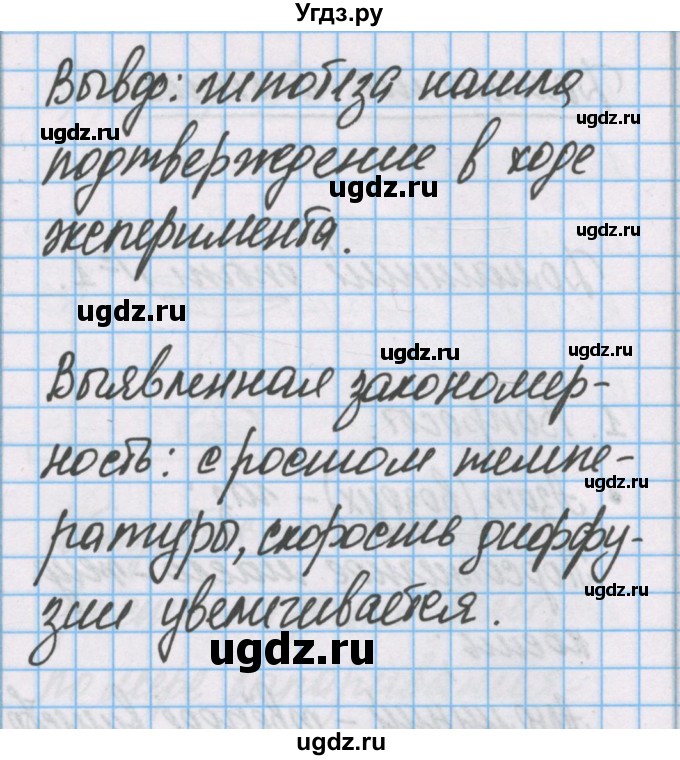 Угдз.ру
Вывод: гипотеза нашла
ugdz.ru
ugdz.ru
подтверждение в ходе
ugdz.ru
эксперимента.
ugdz.ru
ugdz.ru
ugdz.ru
ugdz.ru
Выявленная закономер-
ность: с ростом темпе-
ugdz.ru
ратуры, скорость диффу-
ugdz.ru
зии увеличивается.
ugdz.ru
ugdz.ru